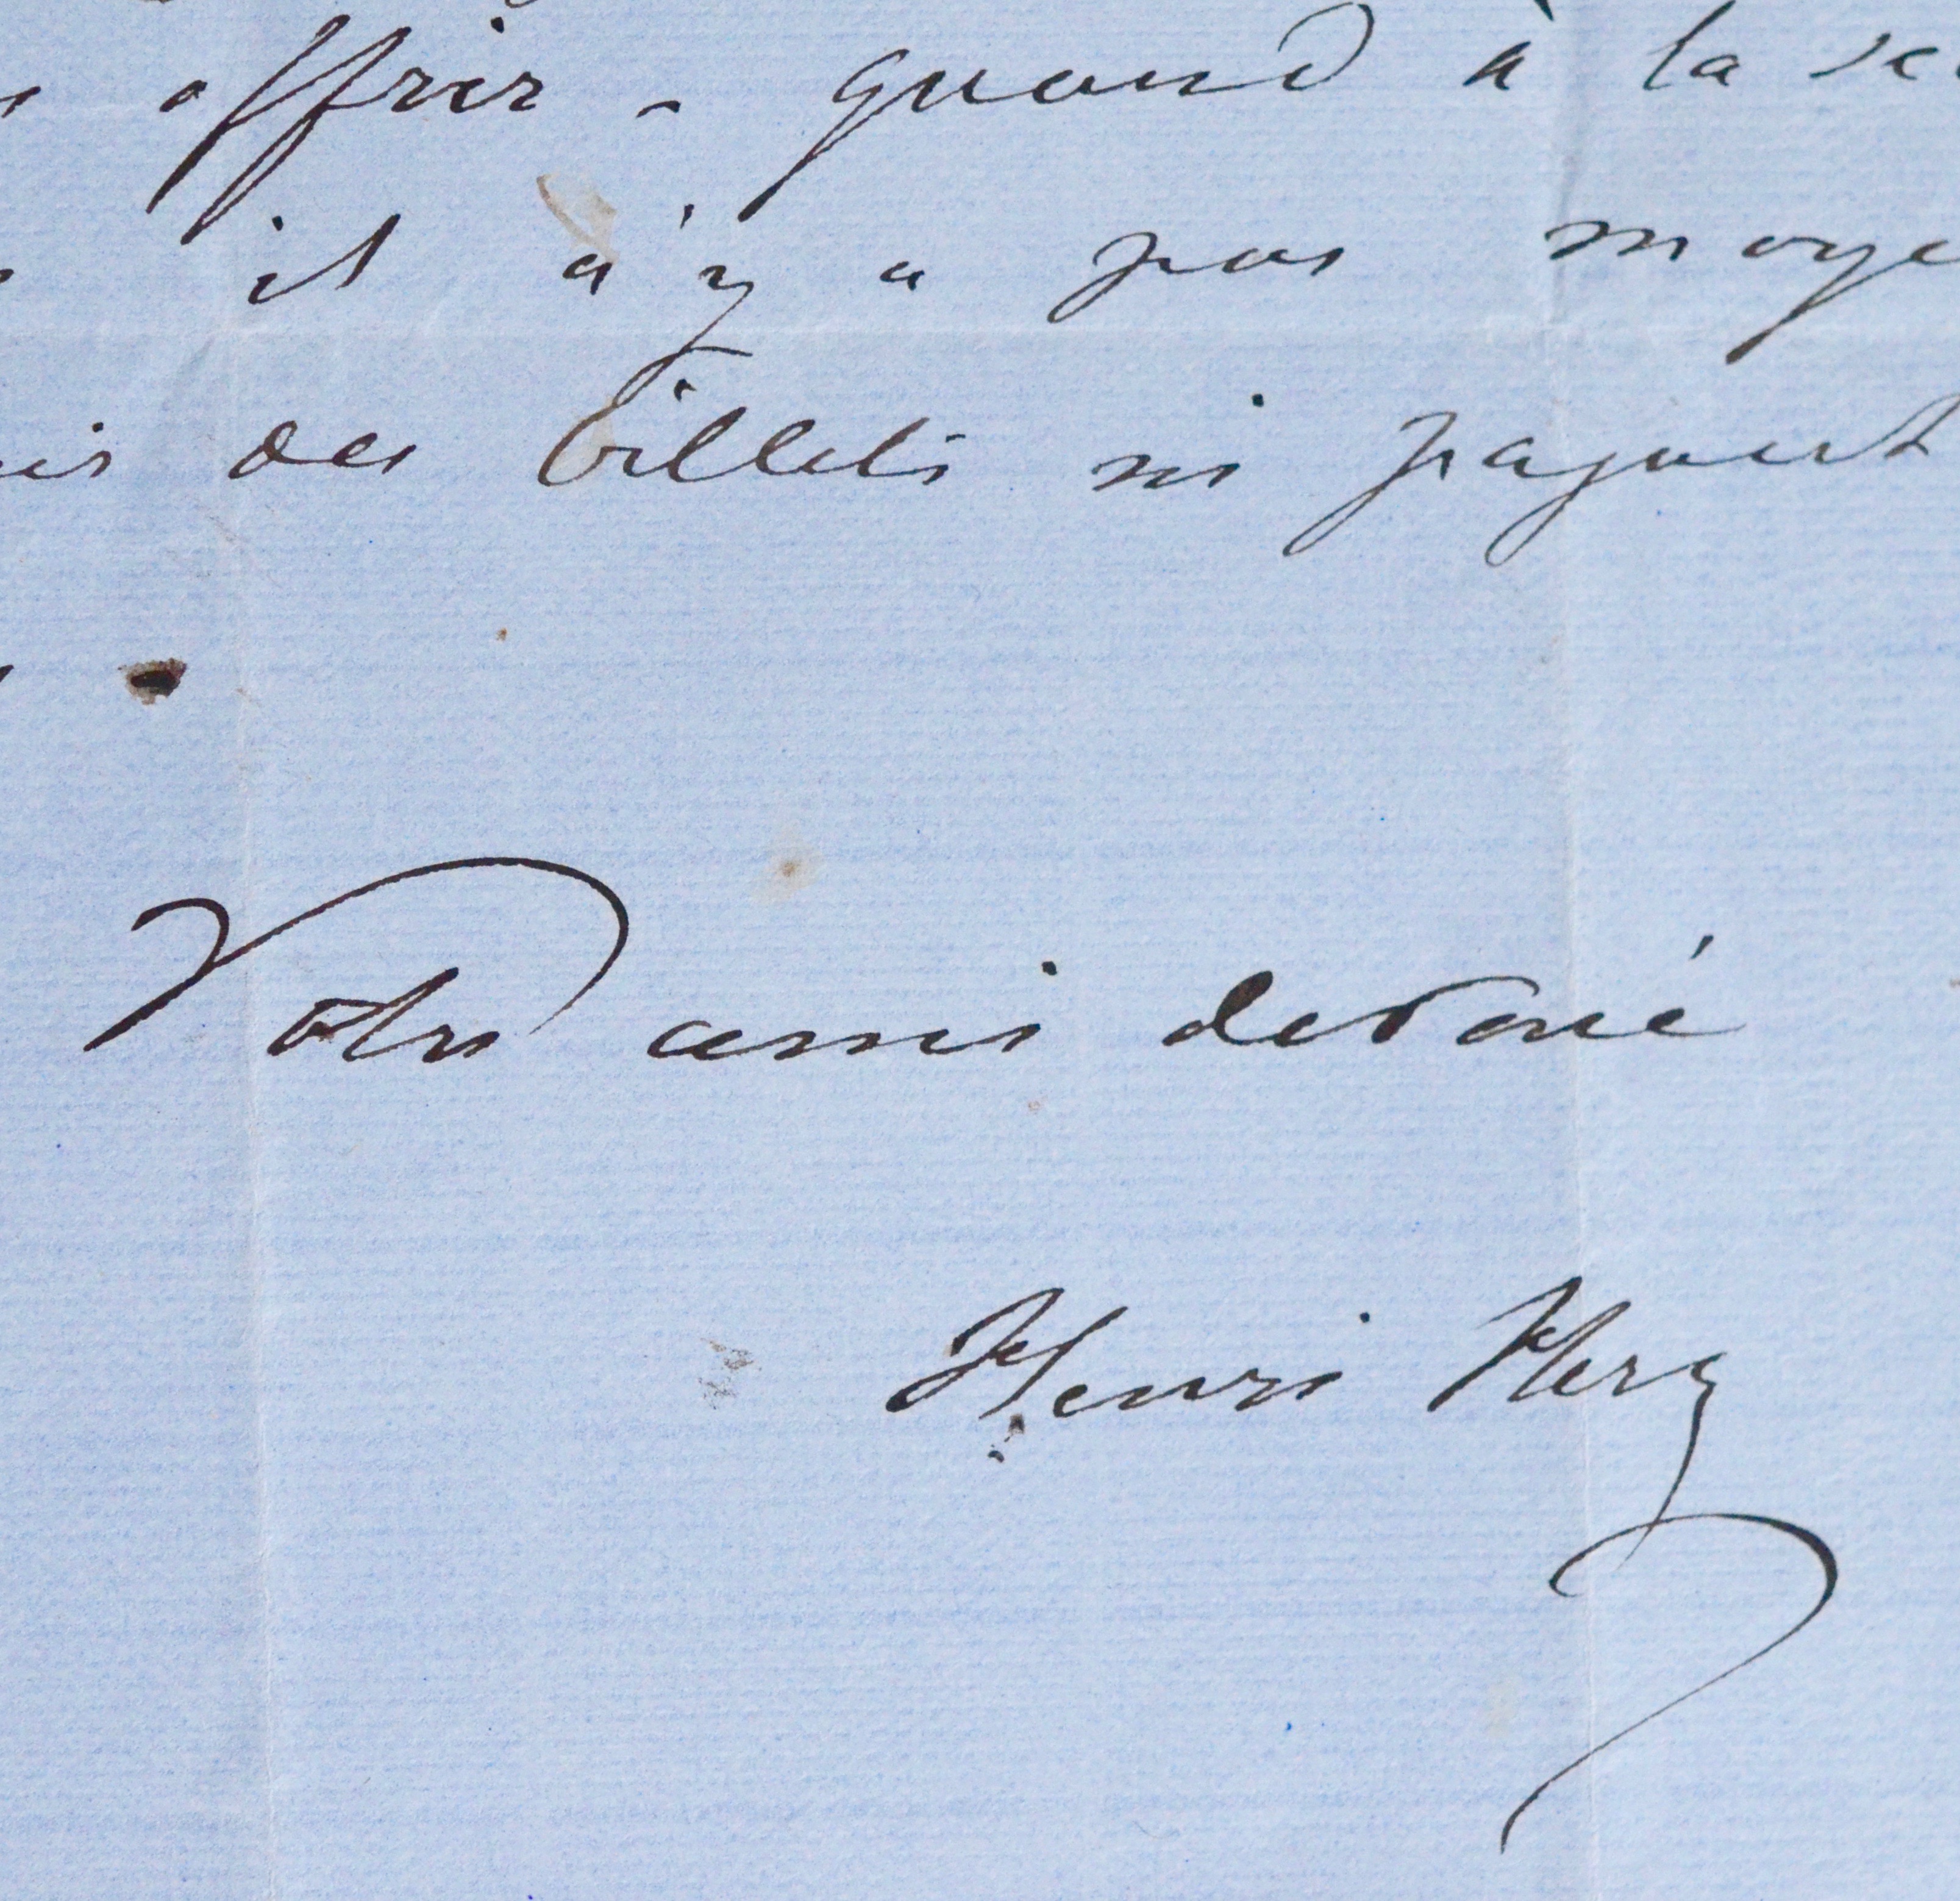 offrir - quand à la
il n'y a pas moye
des billets ni payant
Votre ami devoué
Henri Herz